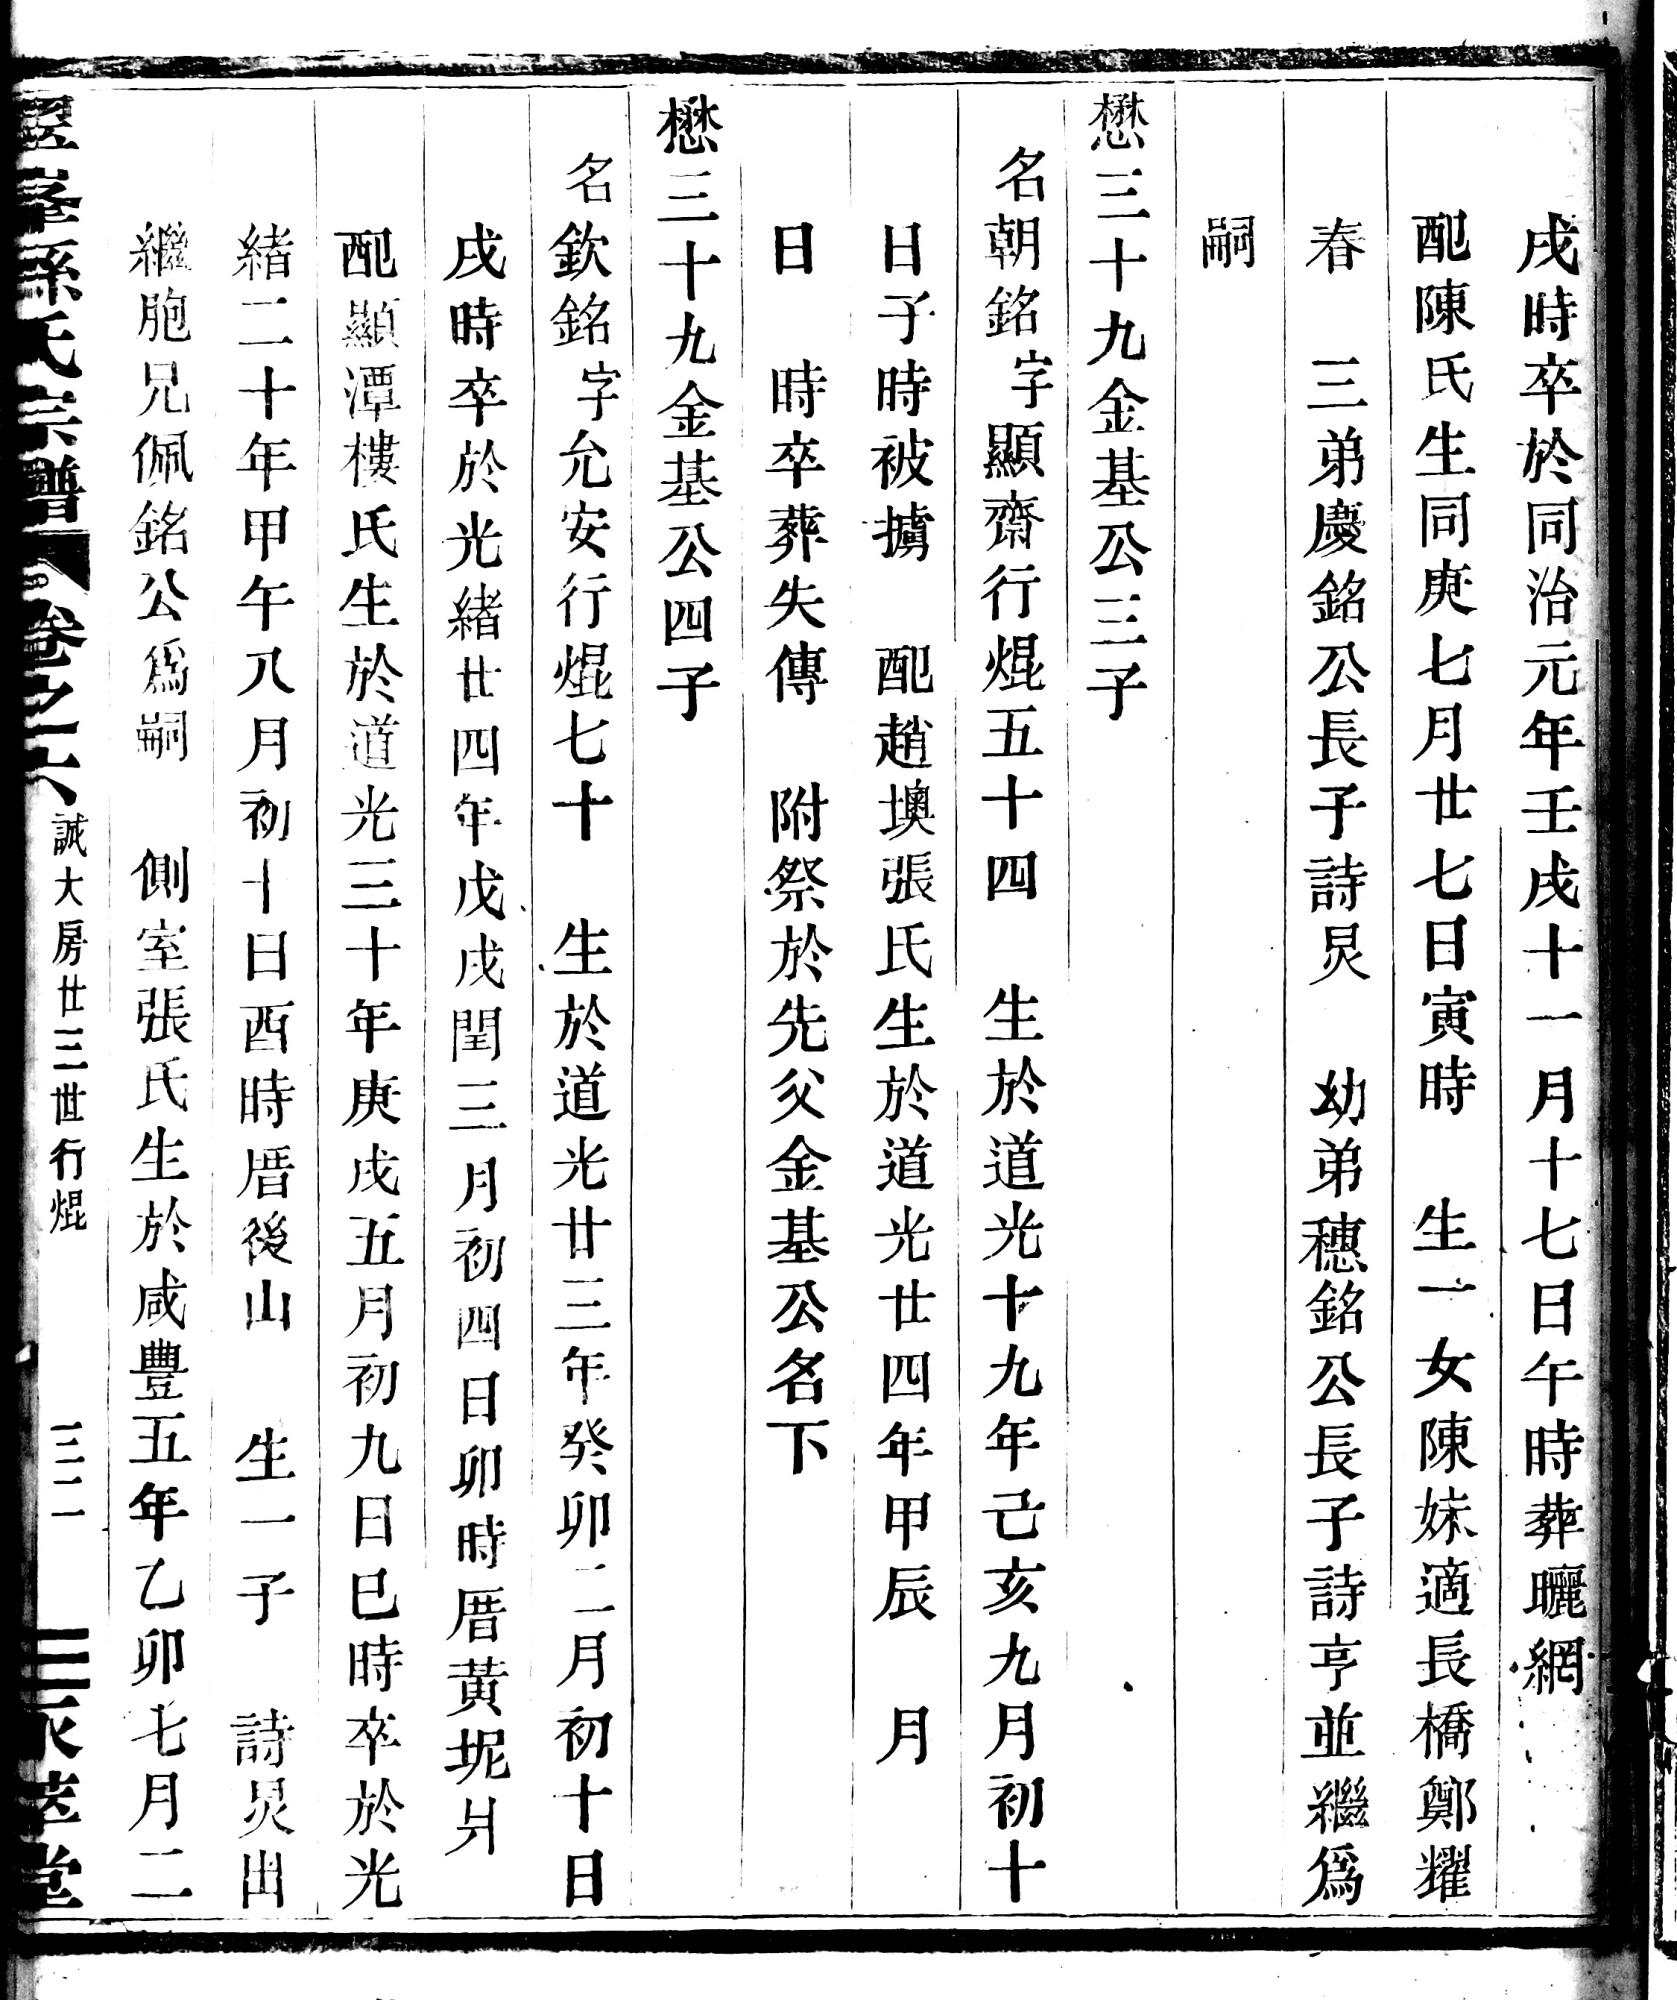 戌時卒於同治元年壬戌十一月十七日午時葬曬網
配陳氏生同庚七月廿七日寅時　生一女陳妹適長橋鄭耀
春　三弟慶銘公長子詩炅　幼弟穗銘公長子詩亨並繼爲
嗣
懋三十九金基公三子
名朝銘字顯齋行焜五十四　生於道光十九年己亥九月初十
日子時被擄　配趙墺張氏生於道光廿四年甲辰　月
日　時卒葬失傳　附祭於先父金基公名下
懋三十九金基公四子
名欽銘字允安行焜七十　生於道光廿三年癸卯二月初十日
戌時卒於光緒廿四年戊戌閏三月初四日卯時厝黄坭爿
配顯潭樓氏生於道光三十年庚戌五月初九日巳時卒於光
緒二十年甲午八月初十日酉時厝後山　生一子　詩炅出
繼胞兄佩銘公爲嗣　側室張氏生於咸豐五年乙卯七月二
峯孫氏宗譜　卷之六　誠大房廿三世行焜　三二　永萃堂